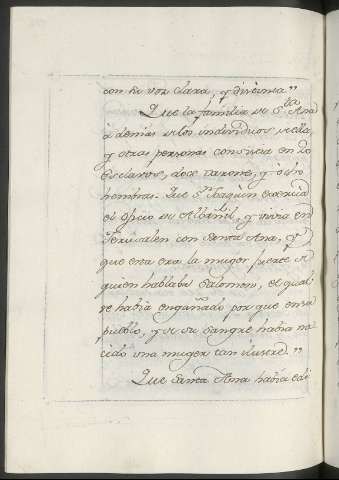 con su voz clara, y distinta"
Que la familia de S.ta Ana
á demás de los individuos de ella,
y otras personas consistia en 20
Esclavos, doce varones, y ocho
hembras. Que S.n Joaquin exercia
el oficio de Albañil, y vivia en
Jerusalen con Santa Ana, y
que esta era la muger fuerte de
quien hablaba Salomon, el qual
se habia engañado por que en su
pueblo, y de su sangre habia na
cido una muger tan ilustre."
Que Santa Ana habia edi